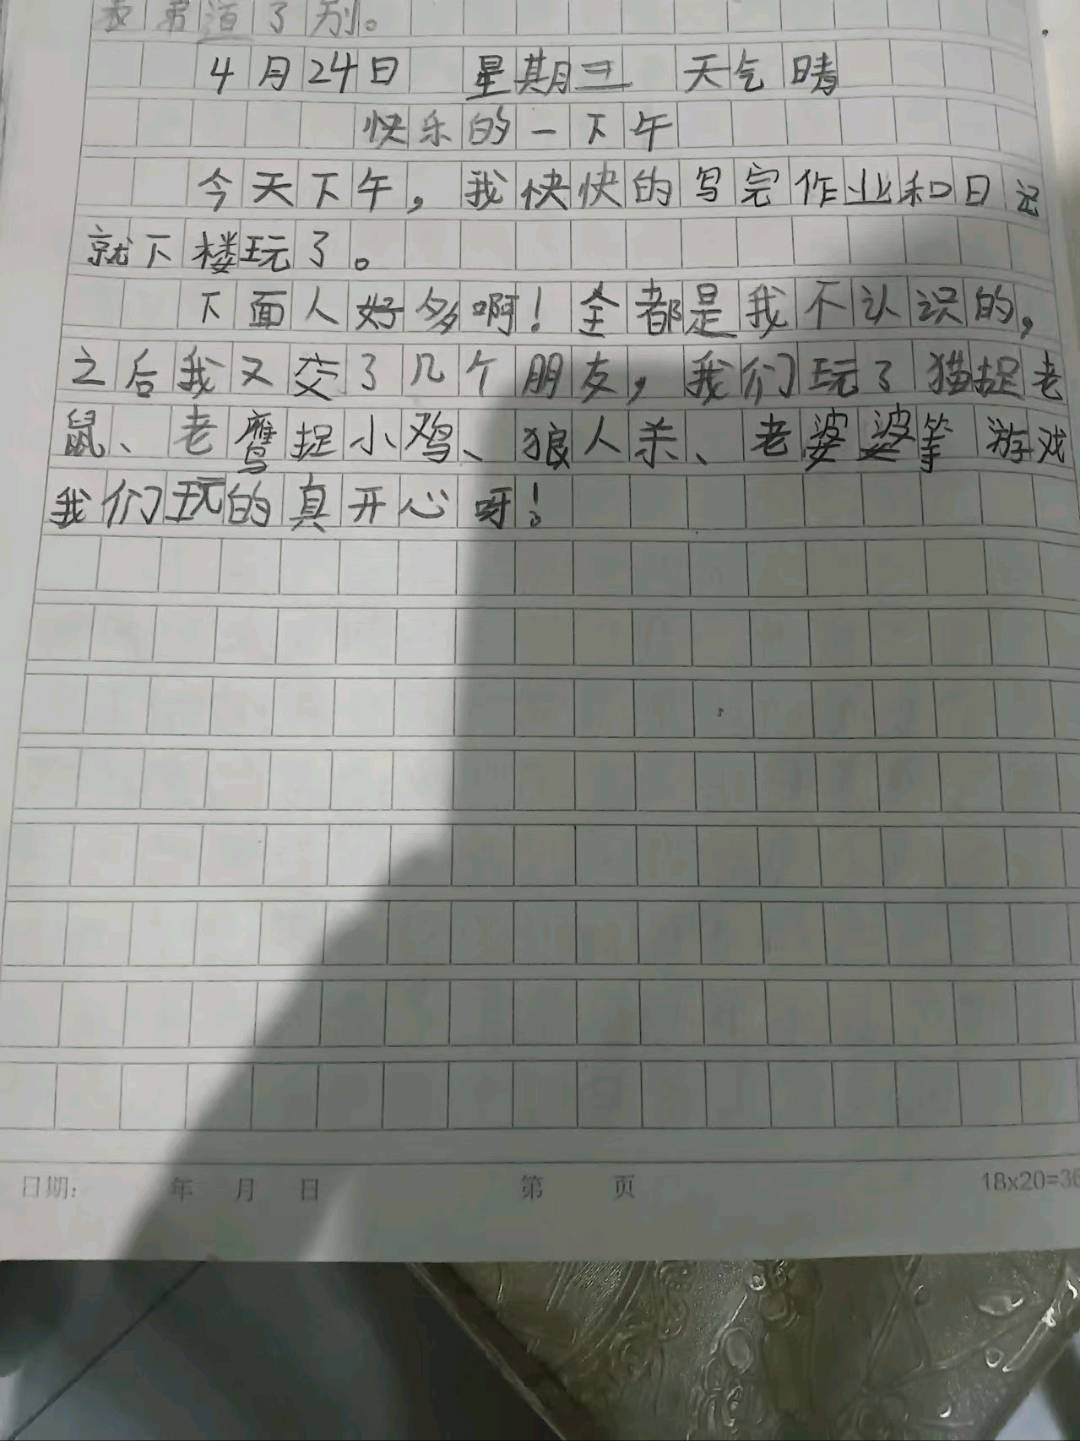 道了别。
4月24日 星期三 天气晴
快乐的一下午
今天下午，我快快的写完作业和日记
就下楼玩了。
下面人好多啊！全都是我不认识的，
之后我又交了几个朋友，我们玩了猫捉老
鼠、老鹰捉小鸡、狼人杀、老婆婆等游戏
我们玩的真开心呀！
日期： 年 月 日 第 页 18x20=36